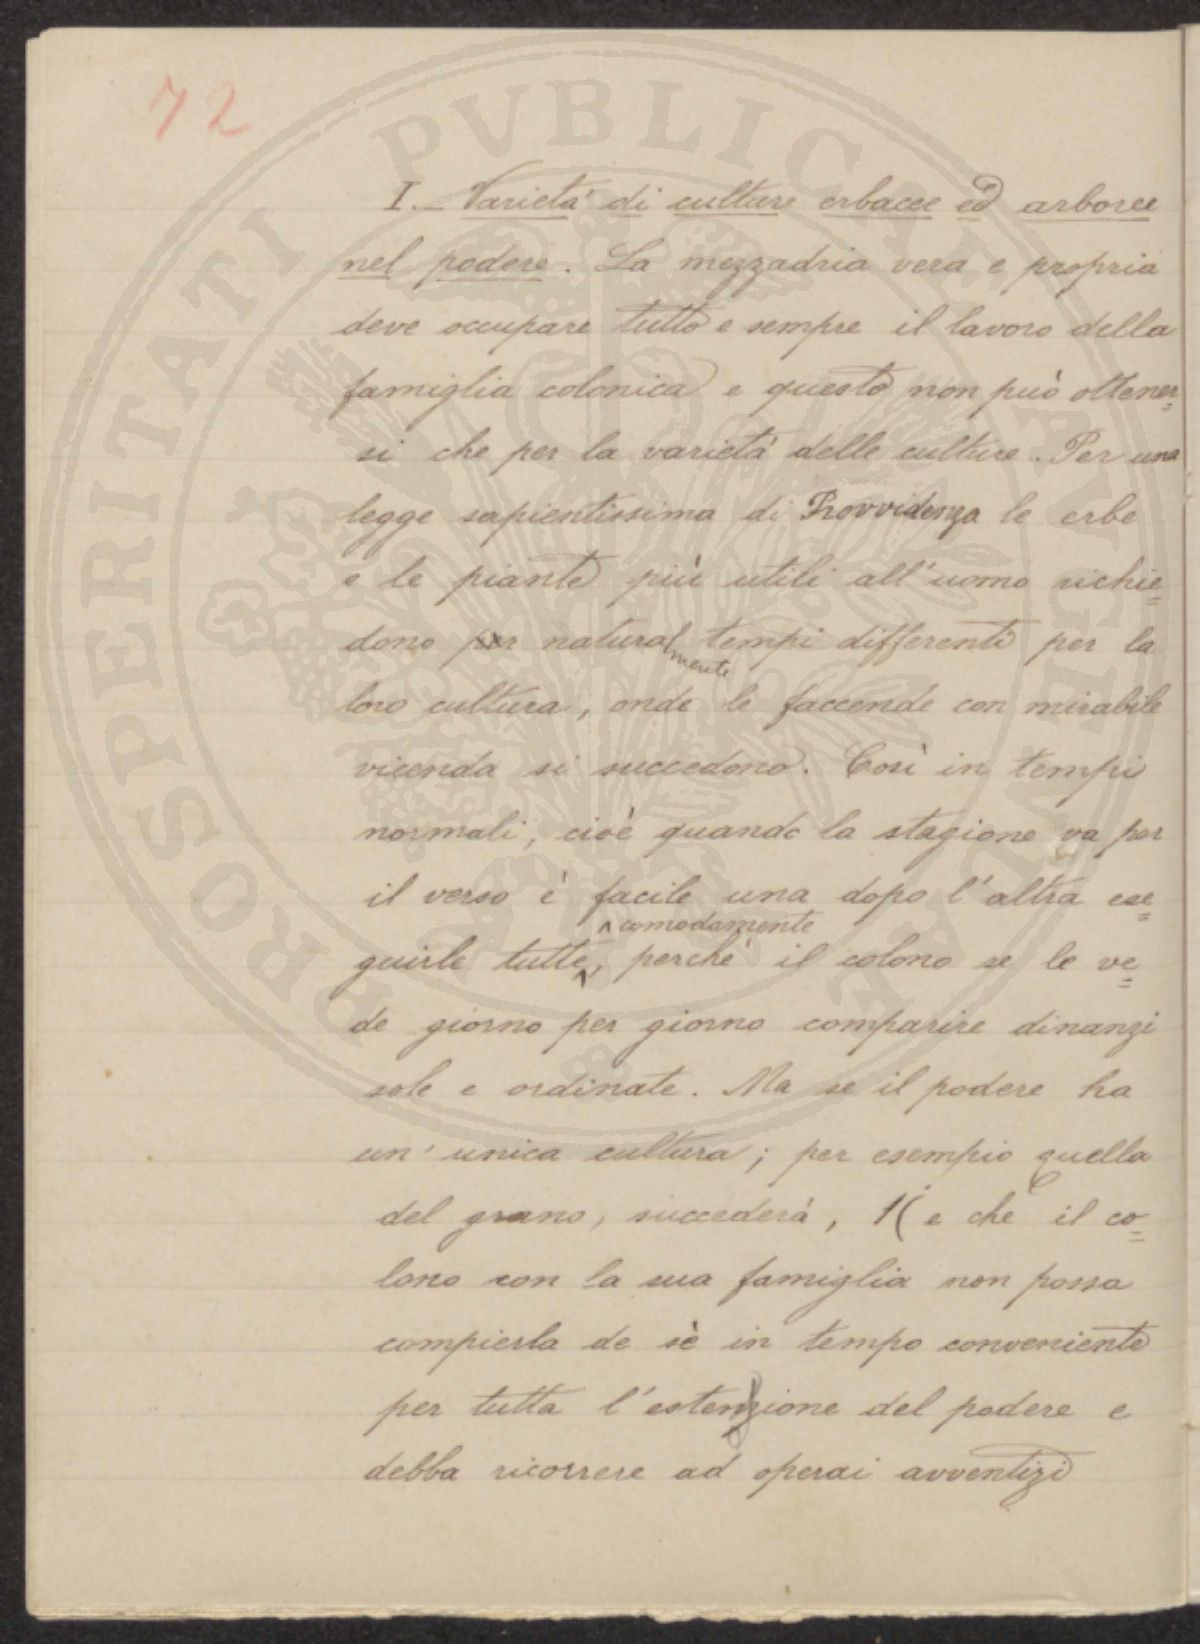 72
I. – Varietà di culture erbacee ed arboree
nel podere. La mezzadria vera e propria
deve occupare tutto e sempre il lavoro della
famiglia colonica e questo non può ottener=
si che per la varietà delle culture. Per una
legge sapientissima di Provvidenza le erbe
e le piante più utili all'uomo richie=
dono per naturalmente tempi differenti per la
loro cultura, onde le faccende con mirabile
vicenda si succedono. Così in tempi
normali, cioè quando la stagione va per
il verso è facile una dopo l'altra ese=
comodamente
guirle tutte, perchè il colono se le ve=
de giorno per giorno comparire dinanzi
sole e ordinate. Ma se il podere ha
un'unica cultura; per esempio quella
del grano, succederà, 1( e che il co=
lono con la sua famiglia non possa
compierla de sè in tempo conveniente
per tutta l'estenzione del podere e
debba ricorrere ad operai avventizi
PROSPERITATI PVBLICAE AVGENDAE